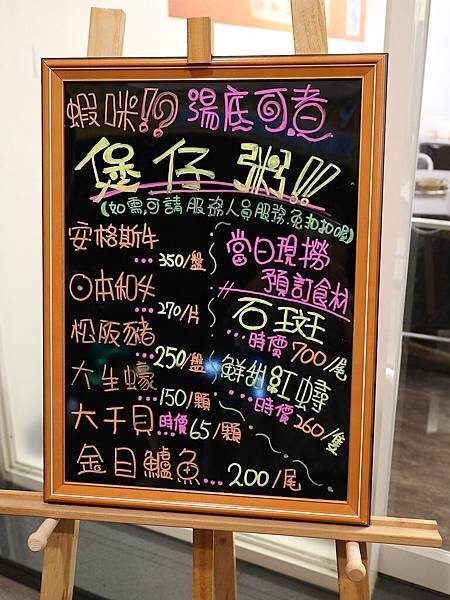 蝦咪!? 湯底可煮
煲仔粥!!
(如需,可請服務人員服務,免扣扣喔)
安格斯牛
...350/盤
日本和牛
...270/片
松阪豬
...250/盤
大生蠔
...150/顆
大干貝時價65/顆
金目鱸魚...200/尾
當日現撈
預訂食材
石斑
...時價700/尾
鮮甜紅蟳
...時價260/隻